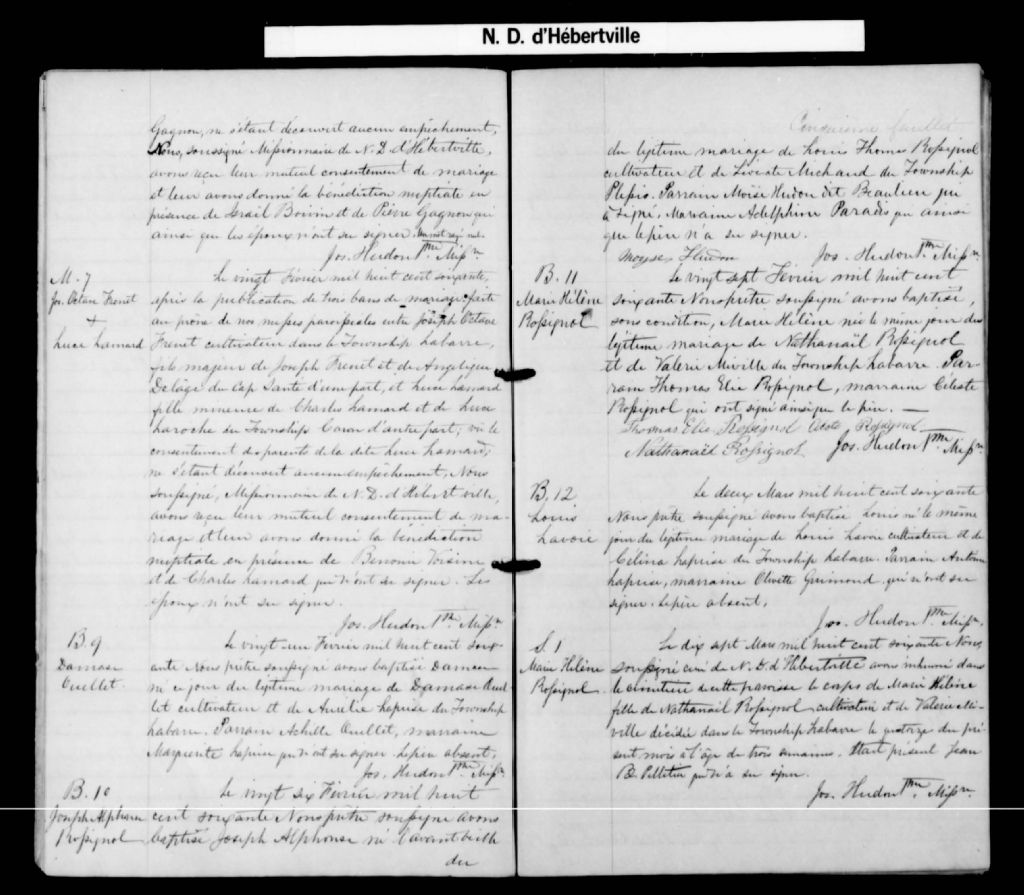 N. D. d'Hébertville
Gagnon, ne s'étant découvert aucun empêchement,
Nous, soussigné Missionnaire de N. D. d'Hébertville,
avons reçu leur mutuel consentement de mariage
et leur avons donné la bénédiction nuptiale en
présence de Israïl Boivin et de Pierre Gagnon qui
ainsi que les époux n'ont su signer.
Jos. Hudon Ptre Missre
M. 7
Jos. Octave Frenet
+
Luce Lamard
Le vingt Février mil huit cent soixante,
après la publication de trois bans de mariage faite
au prône de nos messes paroissiales entre Joseph Octave
Frenet cultivateur dans le Township Labarre,
fils majeur de Joseph Frenet et de Angelique
Delâge du Cap Santé d'une part, et Luce Lamard
fille mineure de Charles Lamard et de Luce
Laroche du Township Caron d'autre part; vû le
consentement des parents de la dite Luce Lamard;
ne s'étant découvert aucun empêchement, Nous
soussigné, Missionnaire de N. D. d'Hébertville,
avons reçu leur mutuel consentement de ma-
riage et leur avons donné la bénédiction
nuptiale en présence de Benonie Voisine
et de Charles Lamard qui n'ont su signer. Les
époux n'ont su signer.
Jos. Hudon Ptre Missre
B. 9
Damase
Ouellet
Le vingt un Février mil huit cent soix-
ante Nous prêtre soussigné avons baptisé Damase
né ce jour du légitime mariage de Damase Ouel-
let cultivateur et de Aurelie Laprise du Township
Labarre. Parrain Achille Ouellet, marraine
Marguerite Laprise qui n'ont su signer. Le père absent.
Jos. Hudon Ptre Missre
B. 10
Joseph Alphonse
Rossignol
Le vingt six Février mil huit
cent soixante Nous prêtre soussigné avons
baptisé Joseph Alphonse né l'avant veille
du
Cinquième feuillet
du légitime mariage de Louis Thomas Rossignol
cultivateur et de Michaud du Township
Plessis. Parrain Moïse Hudon dit Beaulieu qui
a signé, Marraine Adelphine Paradis qui ainsi
que le père n'a su signer.
Moyse Hudon Jos. Hudon Ptre Missre
B. 11
Marie Hélène
Rossignol
Le vingt sept Février mil huit cent
soixante Nous prêtre soussigné avons baptisé,
sous condition, Marie Hélène née le même jour du
légitime mariage de Nathanaël Rossignol
et de Valerie Miville du Township Labarre. Par-
rain Thomas Elie Rossignol, marraine Celeste
Rossignol qui ont signé ainsi que le père. —
Thomas Elie Rossignol Rossignol
Nathanaël Rossignol Jos. Hudon Ptre Missre
B. 12
Louis
Lavoie
Le deux Mars mil huit cent soixante
Nous prêtre soussigné avons baptisé Louis né le même
jour du légitime mariage de Louis Lavoie cultivateur et de
Célina Laprise du Township Labarre. Parrain Antoine
Laprise, marraine Olivette Guimond qui n'ont su
signer. Le père absent.
Jos. Hudon Ptre Missre
S. 1
Marie Hélène
Rossignol
Le dix sept Mars mil huit cent soixante Nous
soussigné curé de N. D. d'Hébertville avons inhumé dans
le cimetière de cette paroisse le corps de Marie Hélène
fille de Nathanaël Rossignol cultivateur et de Valerie Mi-
ville décédée dans le Township Labarre le quatorze du pré-
sent mois à l'âge de trois semaines. Etait présent Jean
B. Pelletier qui n'a su signer.
Jos. Hudon Ptre Missre